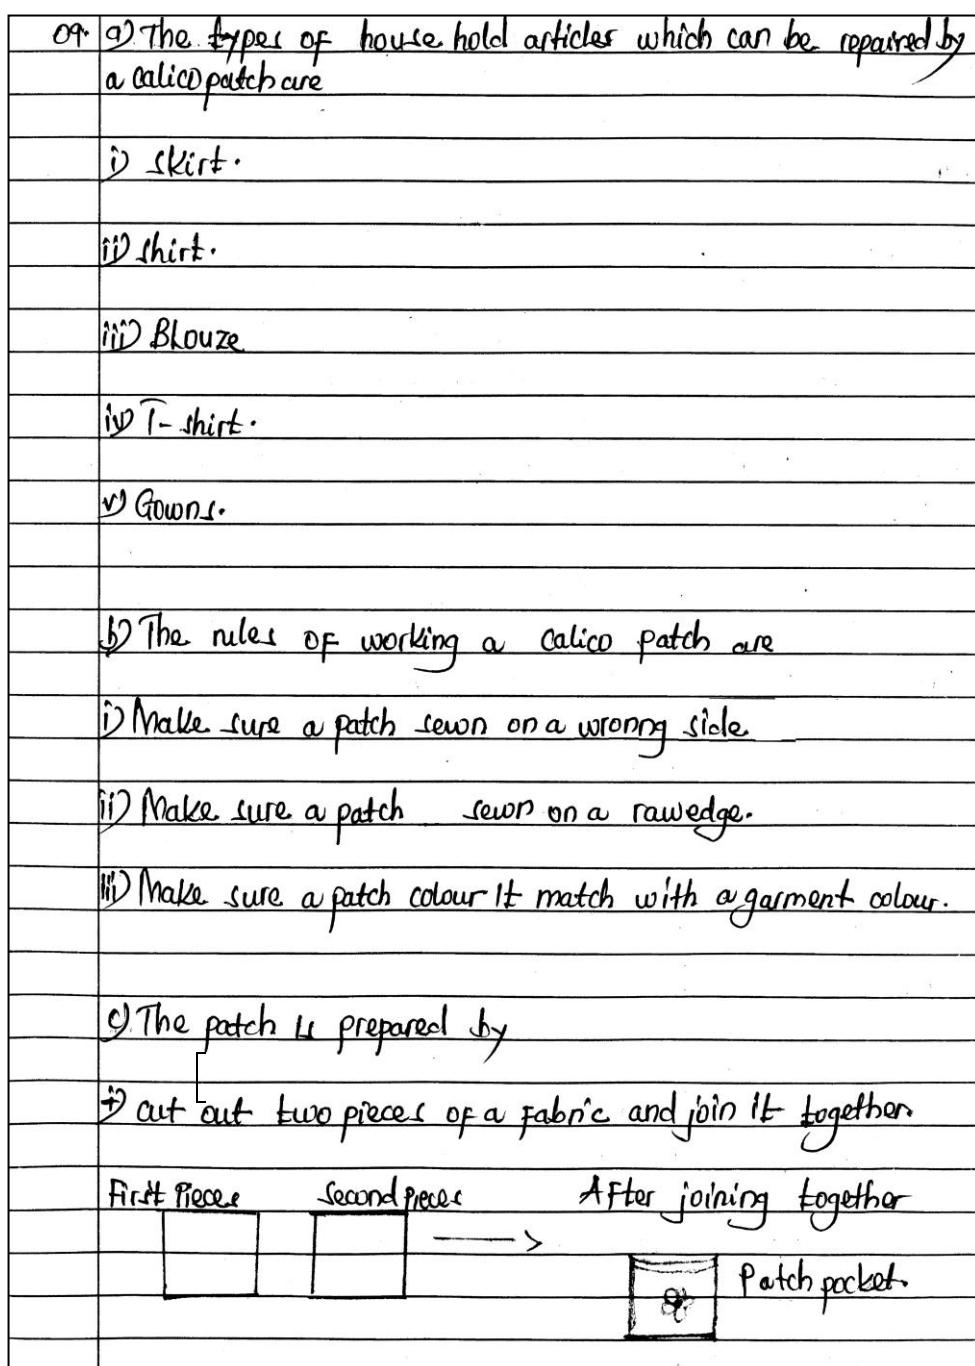 09. a) The types of house hold articles which can be repaired by
a calico patch are
i) skirt.
ii) shirt.
iii) Blouze
iv) T-shirt.
v) Gowns.
b) The rules of working a calico patch are
i) Make sure a patch sewn on a wronng side
ii) Make sure a patch sewn on a rawedge.
iii) Make sure a patch colour it match with a garment colour.
c) The patch is prepared by
i) cut out two pieces of a fabric and join it together
First Pieces Second pieces After joining together
Patch pocket.